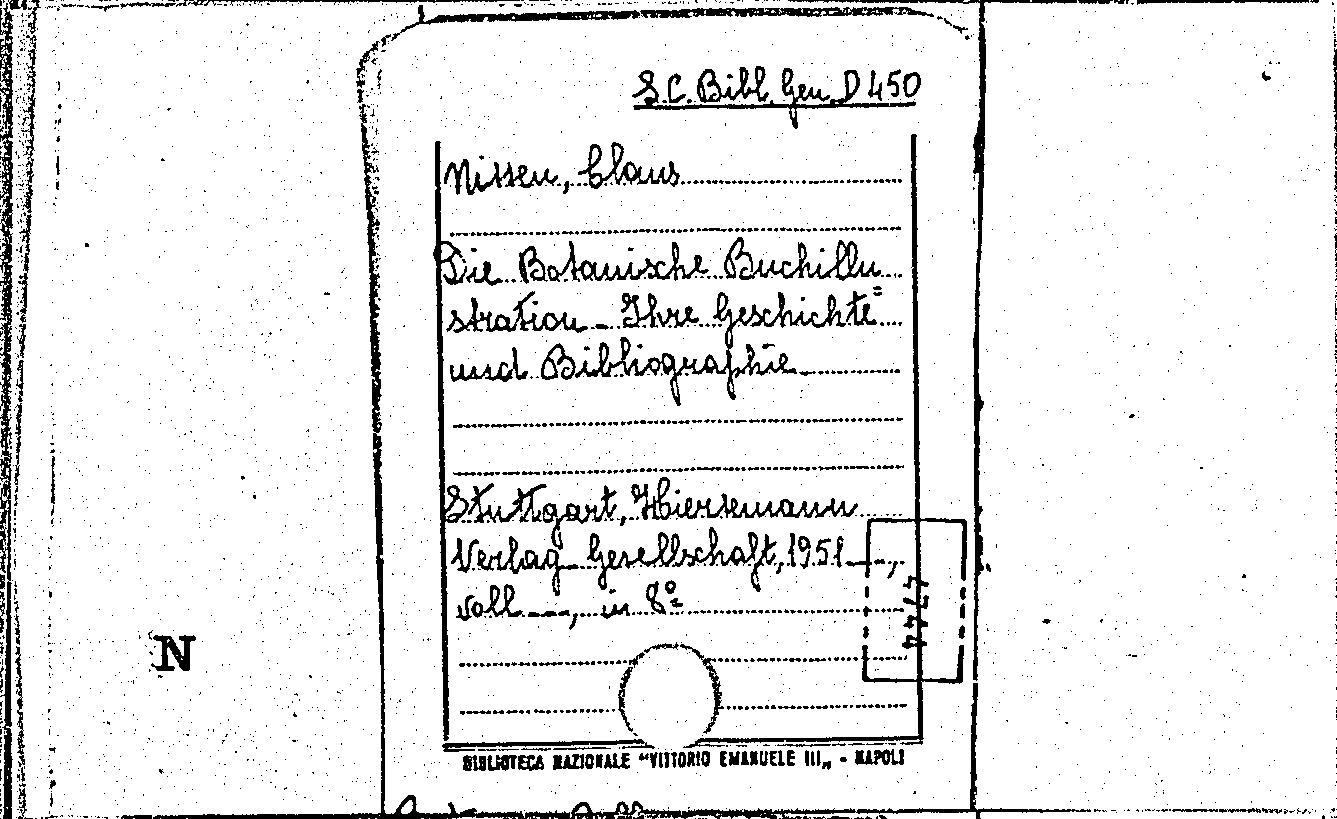 S.C. Bibl. Gen. D 450
Nissen, Claus
Die Botanische Buchillu=
stration - Ihre Geschichte
und Bibliographie
Stuttgart, Hiersemann
Verlag Gesellschaft, 1951 ---,
voll ---, in 8º
N
BIBLIOTECA NAZIONALE "VITTORIO EMANUELE III„ - NAPOLI